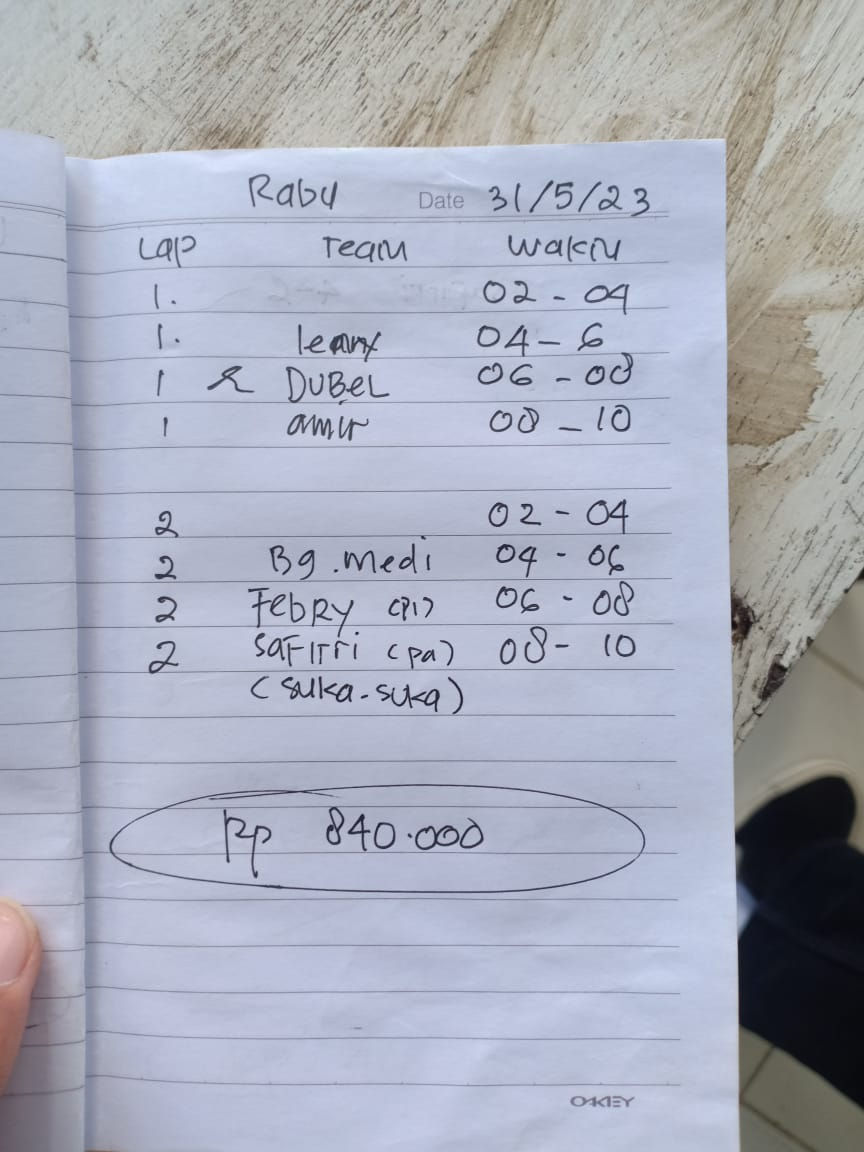 Rabu Date 31/5/23
Lap Team Waktu
1. 02 - 04
1. 04 - 6
1 DUBEL 06 - 08
1 amir 08 - 10
2 02 - 04
2 Bg. medi 04 - 06
2 FebRY (Pi) 06 - 08
2 SaFITri (pa) 08 - 10
(suka-suka)
Rp 840.000
OAKEY